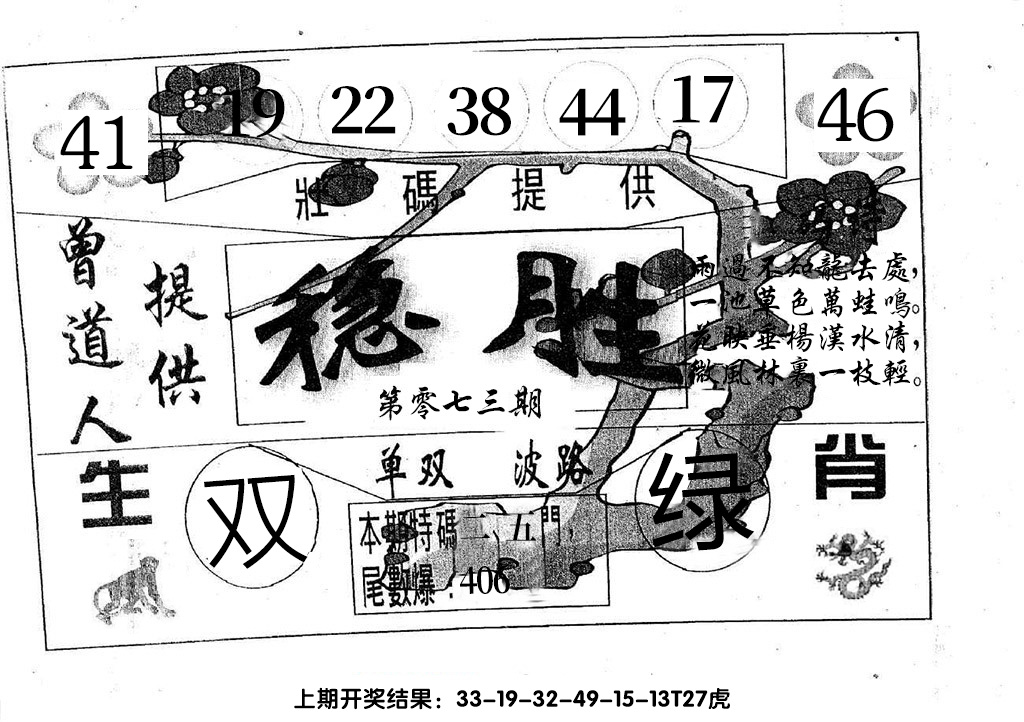 41 19 22 38 44 17 46
壯碼提供
曾道人
提供
穩胜
第零七三期
特
雨過不知龍去處，
一池草色萬蛙鳴。
花映垂楊漢水清，
微風林裏一枝輕。
单双 波路
生肖
双
绿
本期特碼二、五門，
尾數爆：406
上期开奖结果：33-19-32-49-15-13T27虎